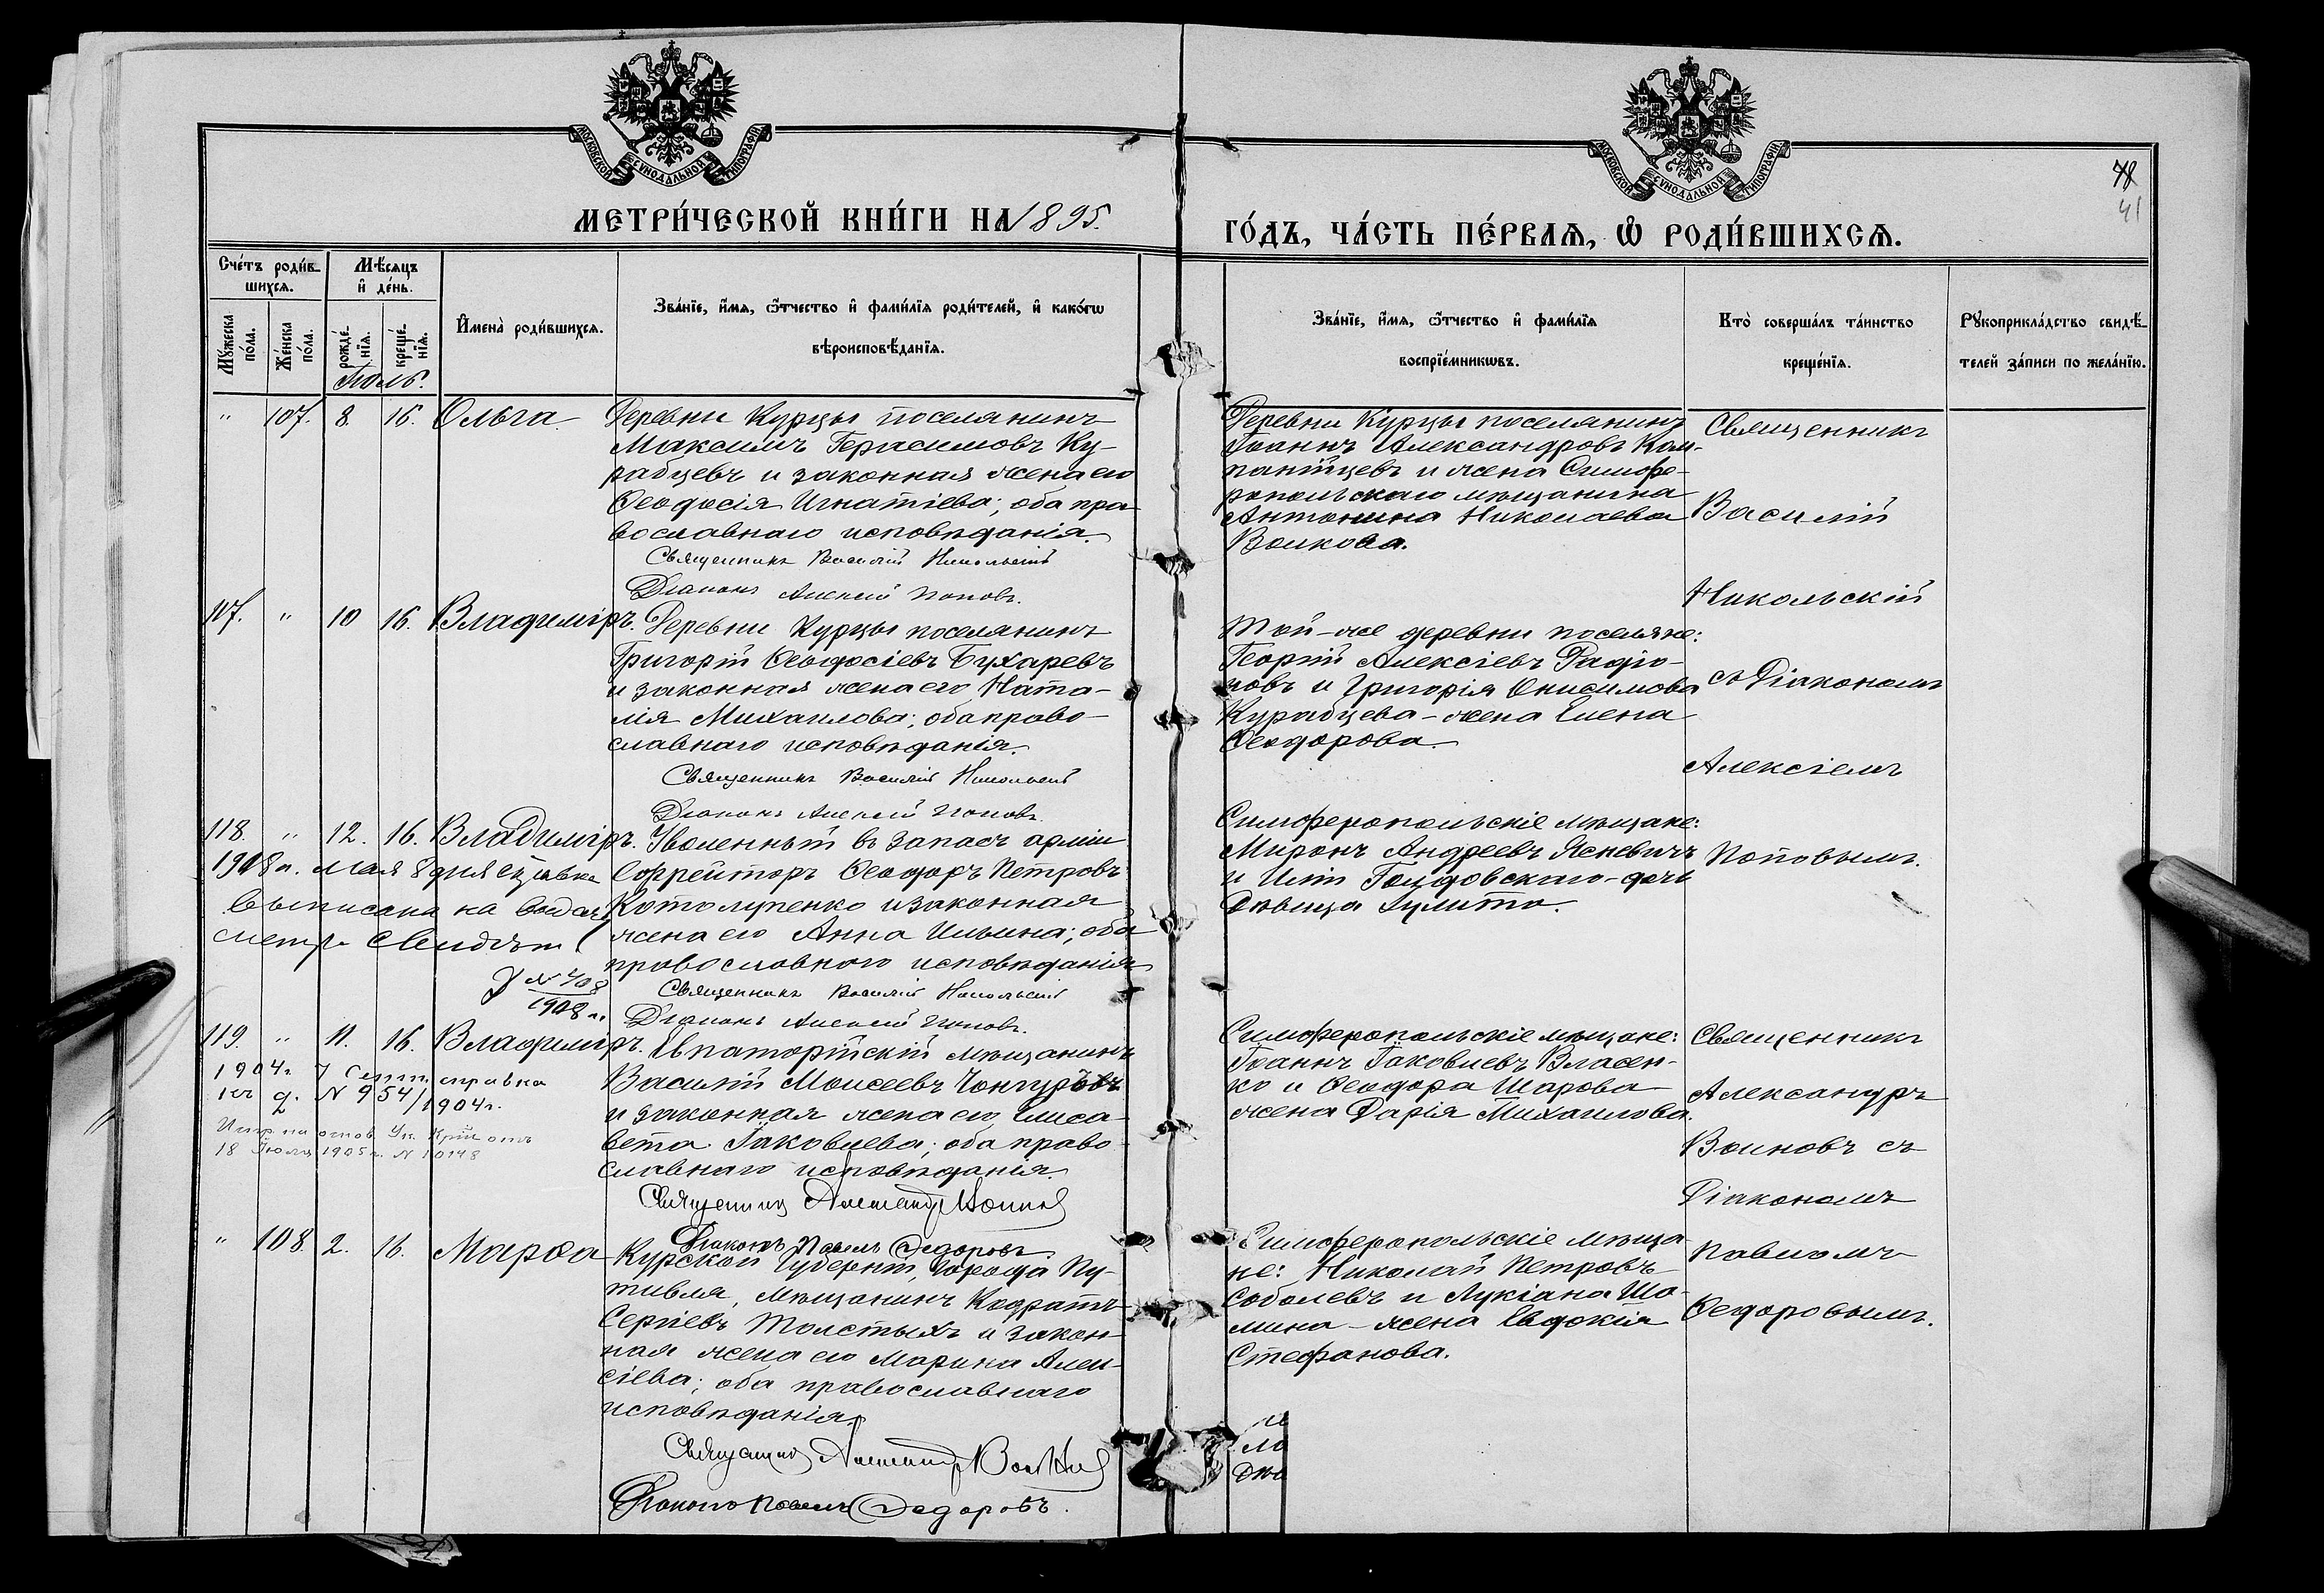 МОСКОВСКОЙ СѴНОДАЛЬНОЙ ТИПОГРАФІИ
МОСКОВСКОЙ СѴНОДАЛЬНОЙ ТИПОГРАФІИ
МЕТРИ́ЧЕСКОЙ КНИ́ГИ НА 1895.
ГО́ДЪ, ЧА́СТЬ ПЕ́РВАѦ, Ѡ РОДИ́ВШИХСѦ.
78
41
Сче́тъ роди́в-
шихсѧ.
Мѣ́сѧцъ
и҆ де́нь.
Мꙋ́жеска
по́ла.
Же́нска
по́ла.
рожде́-
нїѧ.
креще́-
нїѧ.
И҆мена̀ роди́вшихсѧ.
Зва́нїе, и҆́мѧ, ѻ҆́тчество и҆ фами́лїѧ роди́телей, и҆ како́гѡ
вѣроисповѣ́данїѧ.
Зва́нїе, и҆́мѧ, ѻ҆́тчество и҆ фами́лїѧ
воспрїе́мникѡвъ.
Кто̀ соверша́лъ та́инство
креще́нїѧ.
Рꙋкоприкла́дство свидѣ́-
телей за́писи по жела́нїю.
Іюль.
" 107. 8. 16. Ольга
Деревни Курцы поселянинъ
Максимъ Герасимовъ Ку-
рабцевъ и законная жена его
Ѳеодосія Игнатіева; оба пра-
вославнаго исповѣданія.
Священникъ Василій Никольскій
Діаконъ Алексій Поповъ.
Деревни Курцы поселянинъ
Іоаннъ Александровъ Ком-
панійцевъ и жена Симфе-
ропольскаго мѣщанина
Антонина Николаева
Волкова.
Священникъ
Василій
Никольскій
съ Діакономъ
Алексіемъ
Поповымъ.
117. " 10 16. Владиміръ.
Деревни Курцы поселянинъ
Григорій Ѳеодосіевъ Бухаревъ
и законная жена его Ната-
лія Михаилова; оба право-
славнаго исповѣданія.
Священникъ Василій Никольскій
Діаконъ Алексій Поповъ.
Той-же деревни поселяне:
Георгій Алексіевъ Радіо-
новъ и Григорія Онисимова
Курабцева - жена Елена
Ѳеодорова.
118. " 12. 16. Владиміръ.
Уволенный въ запасъ арміи
Ефрейторъ Ѳеодоръ Петровъ
Котолупенко и законная
жена его Анна Ильина; оба
православнаго исповѣданія
Священникъ Василій Никольскій
Діаконъ Алексій Поповъ.
1908 г. мая 8 дня справка
выписана на выдачу
метр. свидѣт.
№ 708
1908 г.
Симферопольскіе мѣщане:
Миронъ Андреевъ Ясневичъ
и Иліи Голдовскаго - дочь
Дѣвица Іулитта.
119. " 11. 16. Владиміръ.
Евпаторійскій мѣщанинъ
Василій Моисеевъ Чонгуровъ
и законная жена его Елиса-
вета Іаковлева; оба право-
славнаго исповѣданія.
Священникъ Александръ Воиновъ
Діаконъ Павелъ Ѳедоровъ
1904 г. 7 Сент. справка
къ д. № 954/1904 г.
18 Іюля 1905 г. № 10148
Симферопольскіе мѣщане:
Іоаннъ Іаковлевъ Власен-
ко и Ѳеодора Шарова
жена Дарія Михаилова.
Священникъ
Александръ
Воиновъ съ
Діакономъ
Павломъ
Ѳедоровымъ.
" 108. 2. 16. Марѳа
Курской Губерніи, города Пу-
тивля, мѣщанинъ Кодратъ
Сергіевъ Толстыхъ и закон-
ная жена его Марина Алек-
сіева; оба православнаго
исповѣданія.
Священникъ Александръ Воиновъ
Діаконъ Павелъ Ѳедоровъ.
Симферопольскіе мѣща-
не: Николай Петровъ
Соболевъ и Лукіана Шо-
мина - жена Евдокія
Стефанова.